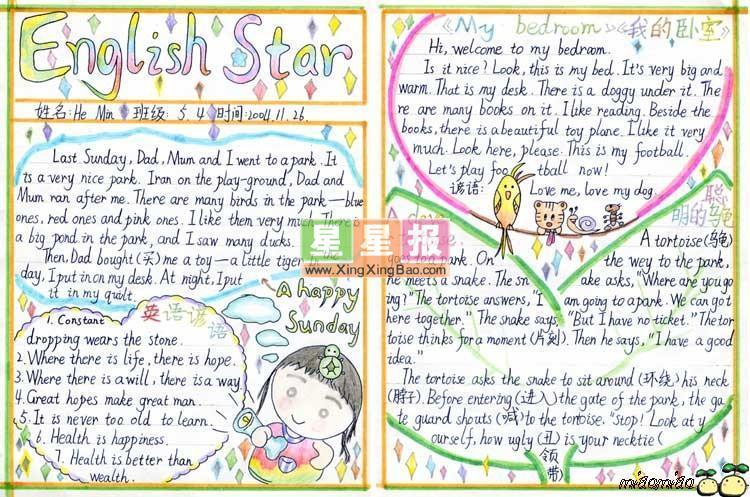 English Star
姓名:He Min 班级: 5.4 时间:2004.11.26.
Last Sunday, Dad, Mum and I went to a park. It
is a very nice park. I ran on the play-ground, Dad and
Mum ran after me. There are many birds in the park—blue
ones, red ones and pink ones. I like them very much. There is
a big pond in the park, and I saw many ducks.
Then, Dad bought(买) me a toy—a little tiger. In the
day, I put in on my desk. At night, I put
it in my quilt.
A happy
Sunday
英语谚语
1. Constant
dropping wears the stone.
2. Where there is life, there is hope.
3. Where there is a will, there is a way
4. Great hopes make great man.
5. It is never too old to learn.
6. Health is happiness.
7. Health is better than
wealth.
星星报
www.XingXingBao.com
《My bedroom》《我的卧室》
Hi, welcome to my bedram.
Is it nice? Look, this is my bed. It's very big and
warm. That is my desk. There is a doggy under it. The
re are many books on it. I like reading. Beside the
books, there is a beautiful toy plane. I like it very
much. Look here, please. This is my football.
Let's play foo tball now!
谚语: Love me, love my dog.
聪
明的乌龟
A tortoise(乌龟)
goes to a park. On the wey to the park,
he meets a snake. The snake asks, "Where are you go
ing?" The tortoise answers, "I am going to a park. We can got
here together." The snake says, "But I have no ticket." The tor
toise thinks for a moment (片刻). Then he says, "I have a good
idea."
The tortoise asks the snake to sit around (环绕) his neck
(脖子). Before entering (进入) the gate of the park, the ga
te guard shouts (喊) to the tortoise. "Stop! Look at y
ourself, how ugly (丑) is your necktie (
领
带)
miaomiao